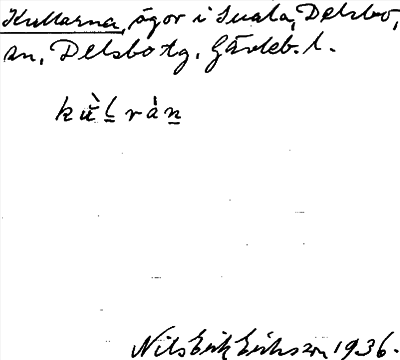 Kullarna, ägor i Svala, Delsbo,
sn, Delsbo tg. Gävleb. l.
kù̆l̠ ràn̠
Nils Erik Eriksson 1936.